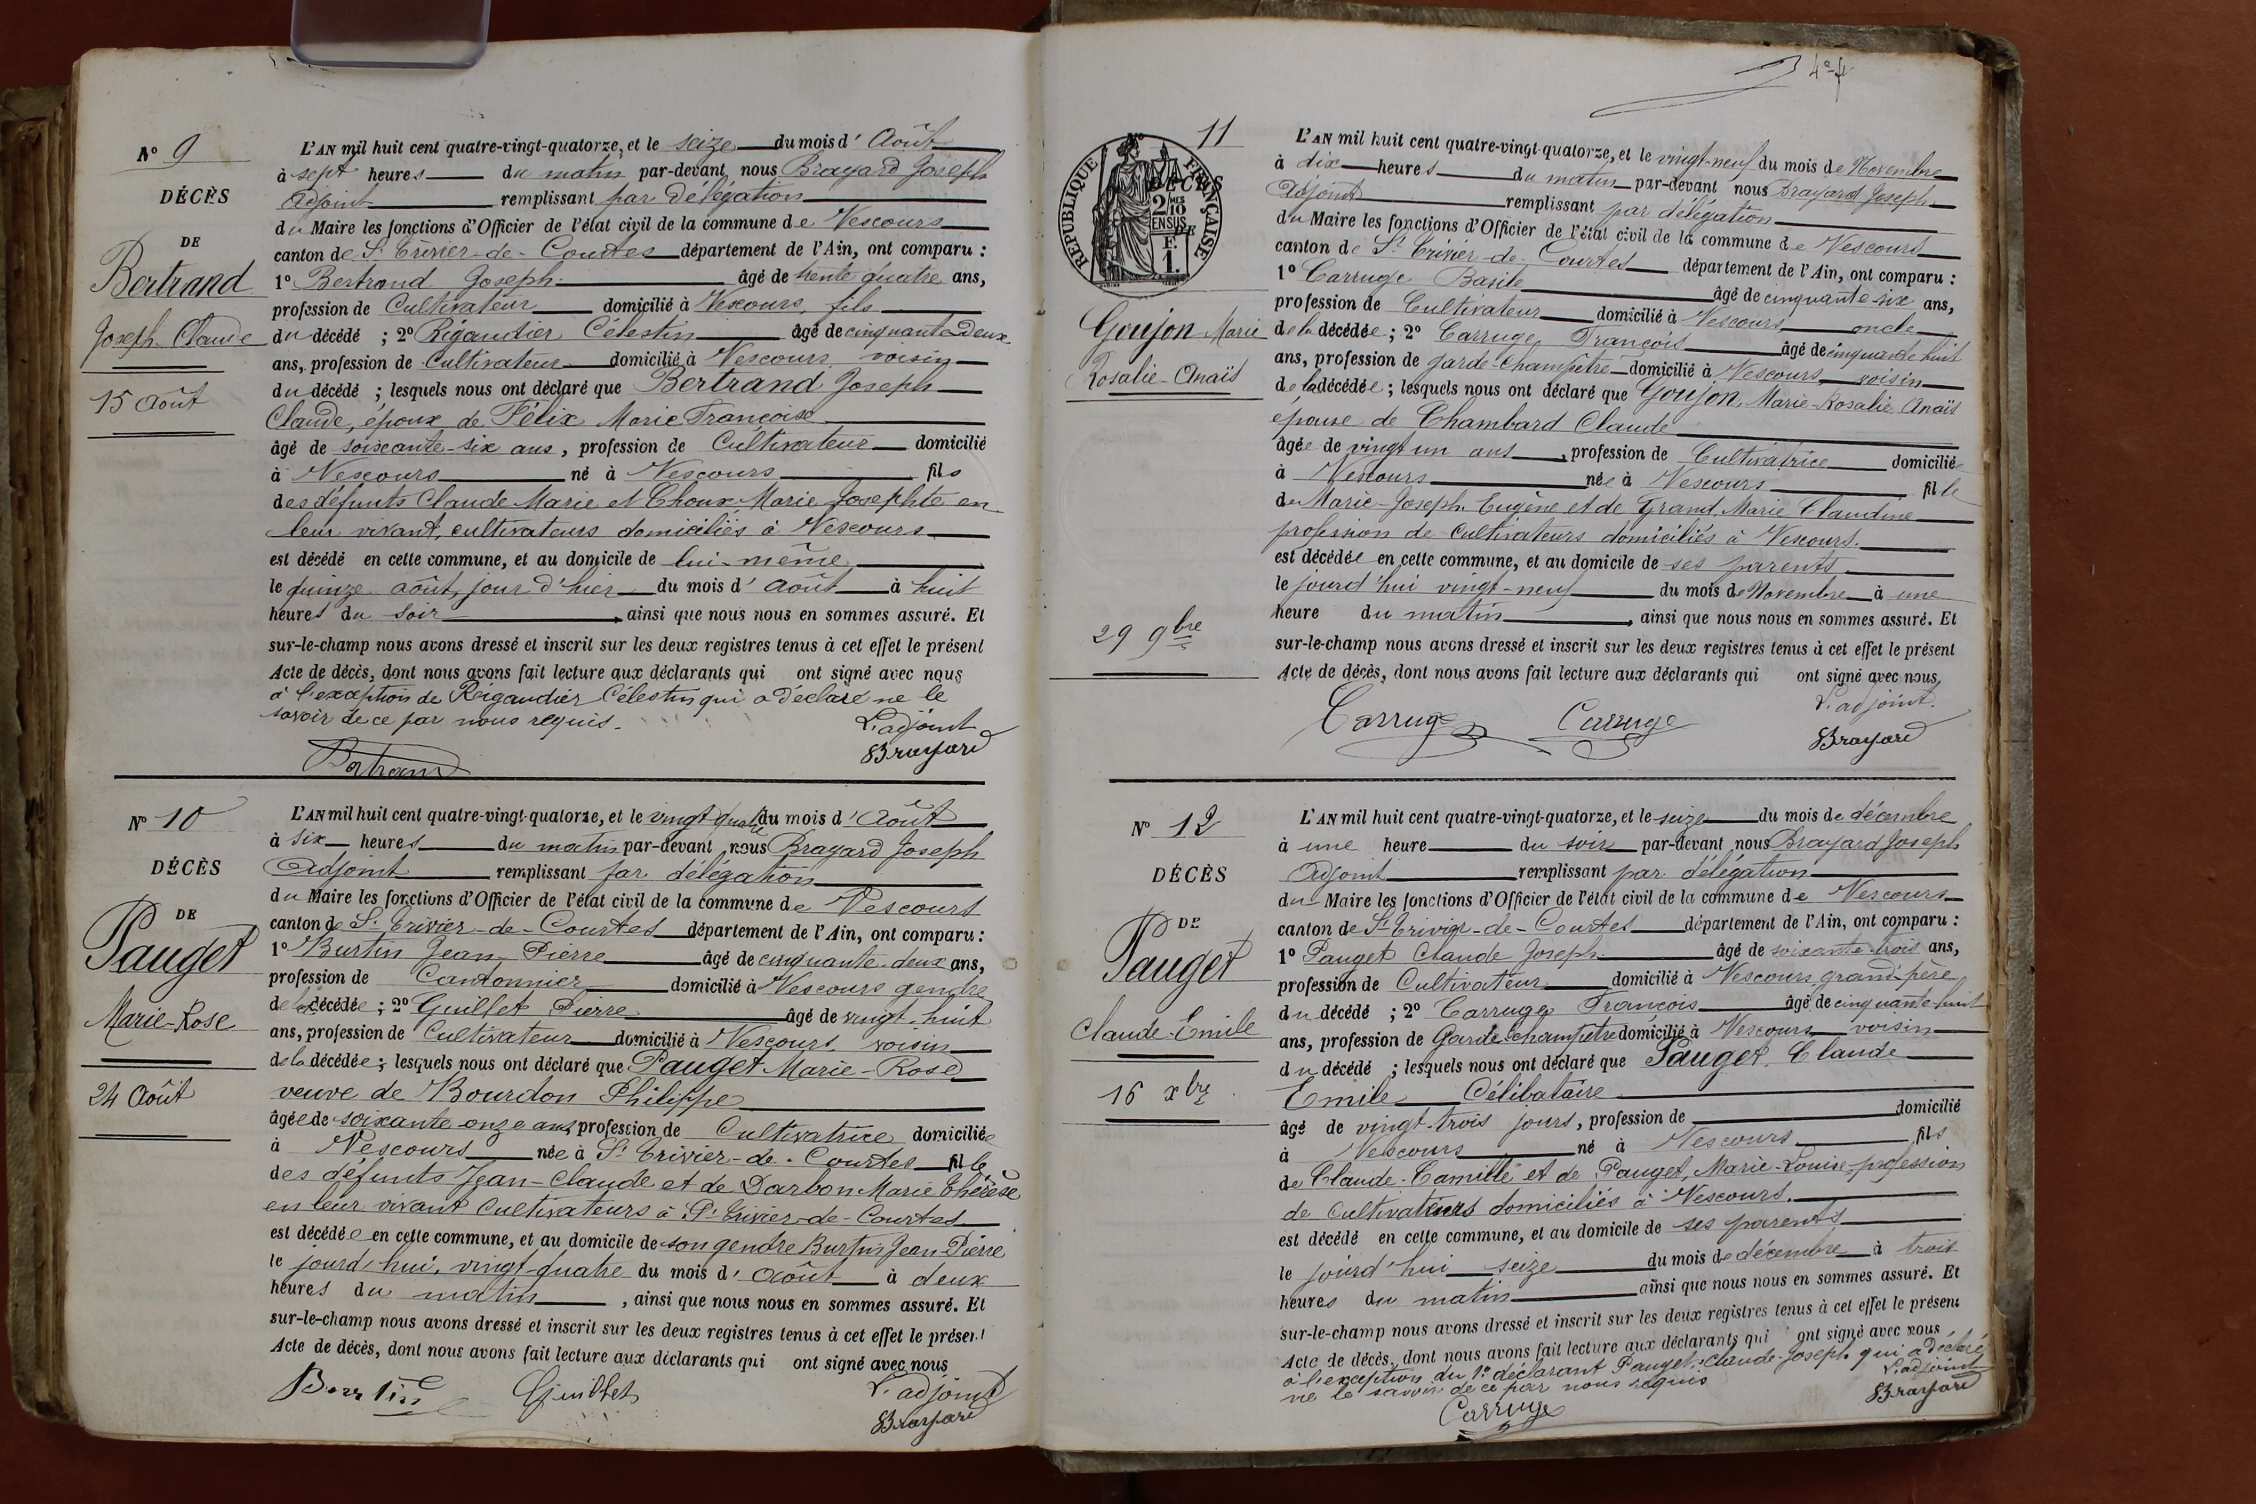 Nº 9
DÉCÈS
DE
Bertrand
Joseph Claude
15 Août
L'AN mil huit cent quatre-vingt-quatorze, et le seize du mois d'Août
à sept heures du matin par-devant nous Brayard Joseph
Adjoint remplissant par délégation
du Maire les fonctions d'Officier de l'état civil de la commune de Vescours
canton de St Trivier-de-Courtes département de l'Ain, ont comparu :
1º Bertrand Joseph âgé de trente quatre ans,
profession de Cultivateur domicilié à Vescours, fils
du décédé ; 2º Rigaudier Célestin âgé de cinquante deux
ans, profession de Cultivateur domicilié à Vescours voisin
du décédé ; lesquels nous ont déclaré que Bertrand Joseph
Claude, époux de Félix Marie Françoise
âgé de soixante-six ans, profession de Cultivateur domicilié
à Vescours né à Vescours fils
des défunts Claude Marie et Choux Marie Josephte en
leur vivant, cultivateurs domiciliés à Vescours
est décédé en cette commune, et au domicile de lui-même
le quinze août, jour d'hier du mois d'Août à huit
heures du soir, ainsi que nous nous en sommes assuré. Et
sur-le-champ nous avons dressé et inscrit sur les deux registres tenus à cet effet le présent
Acte de décès, dont nous avons fait lecture aux déclarants qui ont signé avec nous
à l'exception de Rigaudier Célestin qui a déclaré ne le
savoir de ce par nous requis.
L'adjoint
Bertrand
Brayard
Nº 10
DÉCÈS
DE
Pauget
Marie-Rose
24 Août
L'AN mil huit cent quatre-vingt-quatorze, et le vingt quatre du mois d'Août
à six heures du matin par-devant nous Brayard Joseph
Adjoint remplissant par délégation
du Maire les fonctions d'Officier de l'état civil de la commune de Vescours
canton de St Trivier-de-Courtes département de l'Ain, ont comparu :
1º Burtin Jean Pierre âgé de cinquante-deux ans,
profession de Cantonnier domicilié à Vescours gendre
de la décédée ; 2º Guillet Pierre âgé de vingt-huit
ans, profession de Cultivateur domicilié à Vescours voisin
de la décédée ; lesquels nous ont déclaré que Pauget Marie-Rose
veuve de Bourdon Philippe
âgée de soixante onze ans, profession de Cultivatrice domiciliée
à Vescours née à St Trivier-de-Courtes fille
des défunts Jean-Claude et de Darbon Marie Thérèse
en leur vivant Cultivateurs à St Trivier-de-Courtes
est décédée en cette commune, et au domicile de son gendre Burtin Jean-Pierre
le jourd'hui, vingt-quatre du mois d'Août à deux
heures du matin, ainsi que nous nous en sommes assuré. Et
sur-le-champ nous avons dressé et inscrit sur les deux registres tenus à cet effet le présent
Acte de décès, dont nous avons fait lecture aux déclarants qui ont signé avec nous
Burtin Guillet L'adjoint
Brayard
4
Nº 11
RÉPUBLIQUE FRANÇAISE
DÉCÈS
2 DES 10
EN SUS
DE
F.
1.
Goujon Marie
Rosalie-Anaïs
29 9bre
L'AN mil huit cent quatre-vingt-quatorze, et le vingt-neuf du mois de Novembre
à dix heures du matin par-devant nous Brayard Joseph
Adjoint remplissant par délégation
du Maire les fonctions d'Officier de l'état civil de la commune de Vescours
canton de St Trivier-de-Courtes département de l'Ain, ont comparu :
1º Carruge Basile âgé de cinquante-six ans,
profession de Cultivateur domicilié à Vescours oncle
de la décédée ; 2º Carruge François âgé de cinquante huit
ans, profession de garde-champêtre domicilié à Vescours voisin
de la décédée ; lesquels nous ont déclaré que Goujon Marie-Rosalie Anaïs
épouse de Chambard Claude
âgée de vingt un ans, profession de Cultivatrice domiciliée
à Vescours née à Vescours fille
de Marie-Joseph Eugène et de Grand Marie Claudine
profession de cultivateurs domiciliés à Vescours.
est décédée en cette commune, et au domicile de ses parents
le jourd'hui vingt-neuf du mois de Novembre à une
heure du matin, ainsi que nous nous en sommes assuré. Et
sur-le-champ nous avons dressé et inscrit sur les deux registres tenus à cet effet le présent
Acte de décès, dont nous avons fait lecture aux déclarants qui ont signé avec nous
L'adjoint.
Carruge Carruge
Brayard
Nº 12
DÉCÈS
DE
Pauget
Claude-Emile
16 xbre
L'AN mil huit cent quatre-vingt-quatorze, et le seize du mois de décembre
à une heure du soir par-devant nous Brayard Joseph
Adjoint remplissant par délégation
du Maire les fonctions d'Officier de l'état civil de la commune de Vescours
canton de St Trivier-de-Courtes département de l'Ain, ont comparu :
1º Pauget Claude Joseph âgé de soixante-trois ans,
profession de Cultivateur domicilié à Vescours grand-père
du décédé ; 2º Carruge François âgé de cinquante-huit
ans, profession de Garde champêtre domicilié à Vescours voisin
du décédé ; lesquels nous ont déclaré que Pauget Claude
Emile Célibataire
âgé de vingt-trois jours, profession de domicilié
à Vescours né à Vescours fils
de Claude-Camille et de Pauget, Marie-Louise profession
de Cultivateurs domiciliés à Vescours.
est décédé en cette commune, et au domicile de ses parents
le jourd'hui seize du mois de décembre à trois
heures du matin ainsi que nous nous en sommes assuré. Et
sur-le-champ nous avons dressé et inscrit sur les deux registres tenus à cet effet le présent
Acte de décès, dont nous avons fait lecture aux déclarants qui ont signé avec nous
à l'exception du 1er déclarant Pauget Claude-Joseph qui a déclaré
ne le savoir de ce par nous requis
L'adjoint
Carruge
Brayard